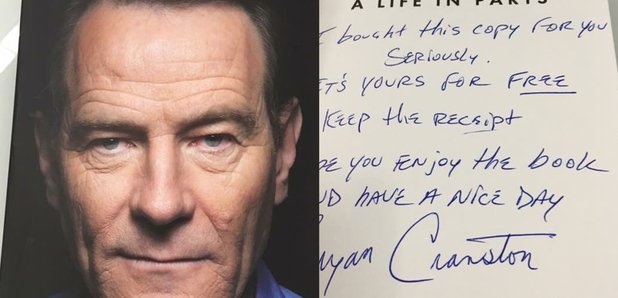 A LIFE IN PARTS
I bought this copy FOR you
SERIOUSLY.
IT'S YOURS FOR FREE
KEEP the RECEIPT
YOU ENJOY the book
HAVE A NICE DAY
Cranston